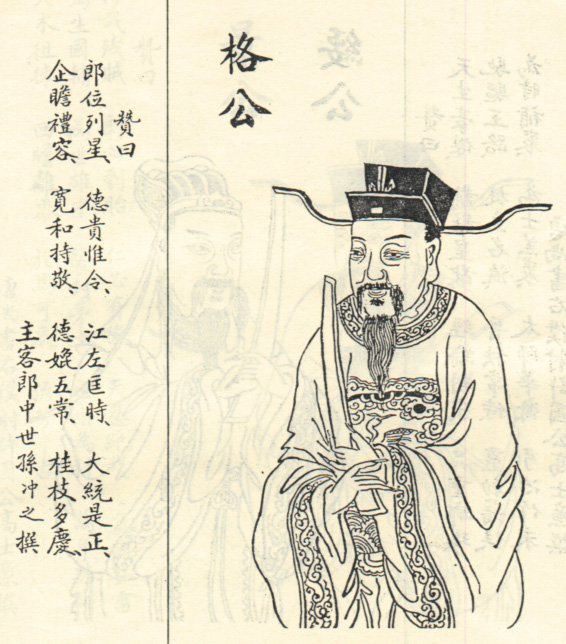 格公
贊曰
郎位列星、德貴惟令、江左匡時、大統是正、
企瞻禮容、寬和持敬、德五常、桂枝多慶、
主客郎中世孫冲之撰